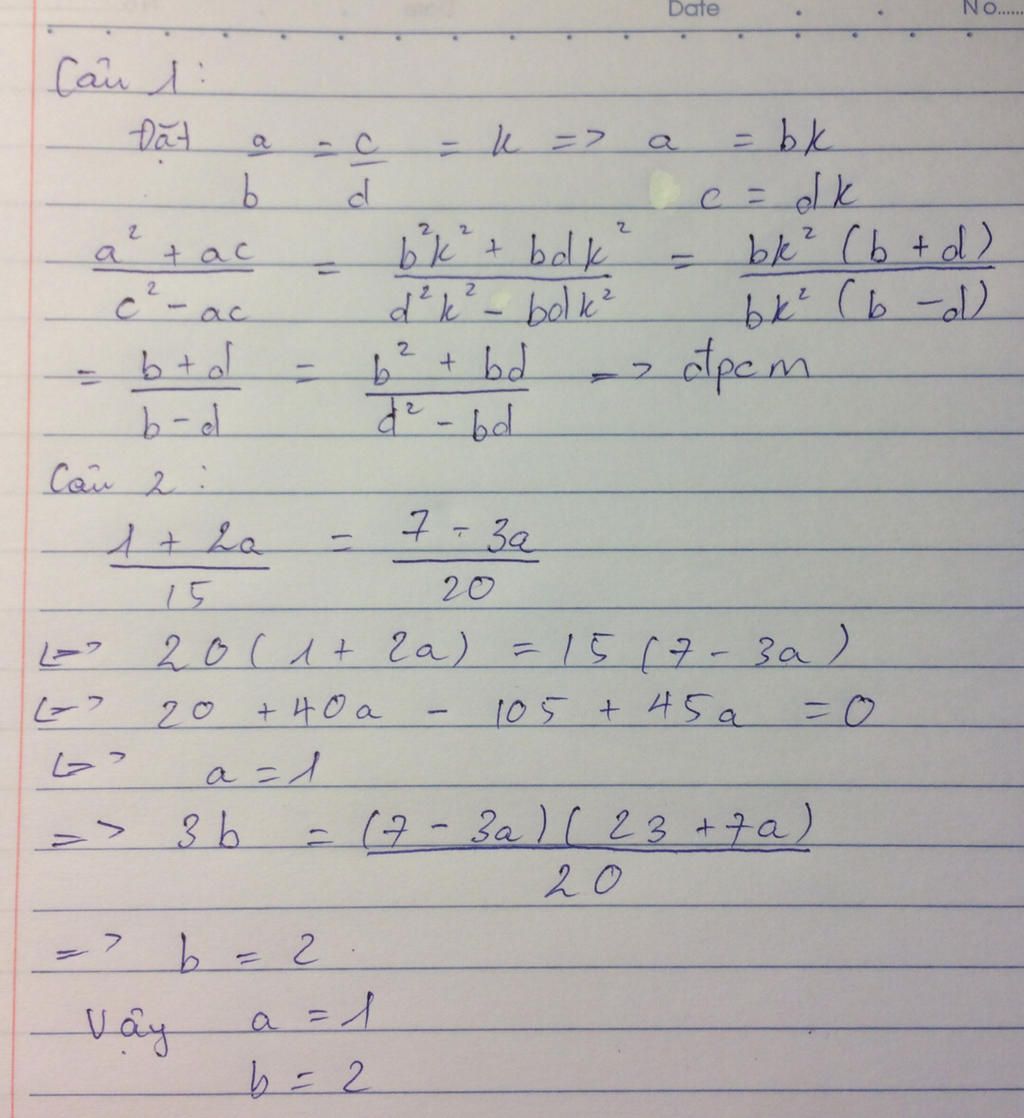 Date . . No......
Câu 1 :
Đặt a/b = c/d = k => a = bk
c = dk
(a² + ac)/(c² - ac) = (b²k² + bdk²)/(d²k² - bdk²) = (bk² (b + d))/(bk² (b - d))
= (b + d)/(b - d) = (b² + bd)/(d² - bd) => đpcm
Câu 2 :
(1 + 2a)/15 = (7 - 3a)/20
<=> 20 ( 1 + 2a) = 15 (7 - 3a)
<=> 20 + 40a - 105 + 45a = 0
<=> a = 1
=> 3b = ((7 - 3a) ( 23 + 7a))/20
=> b = 2
Vậy a = 1
b = 2